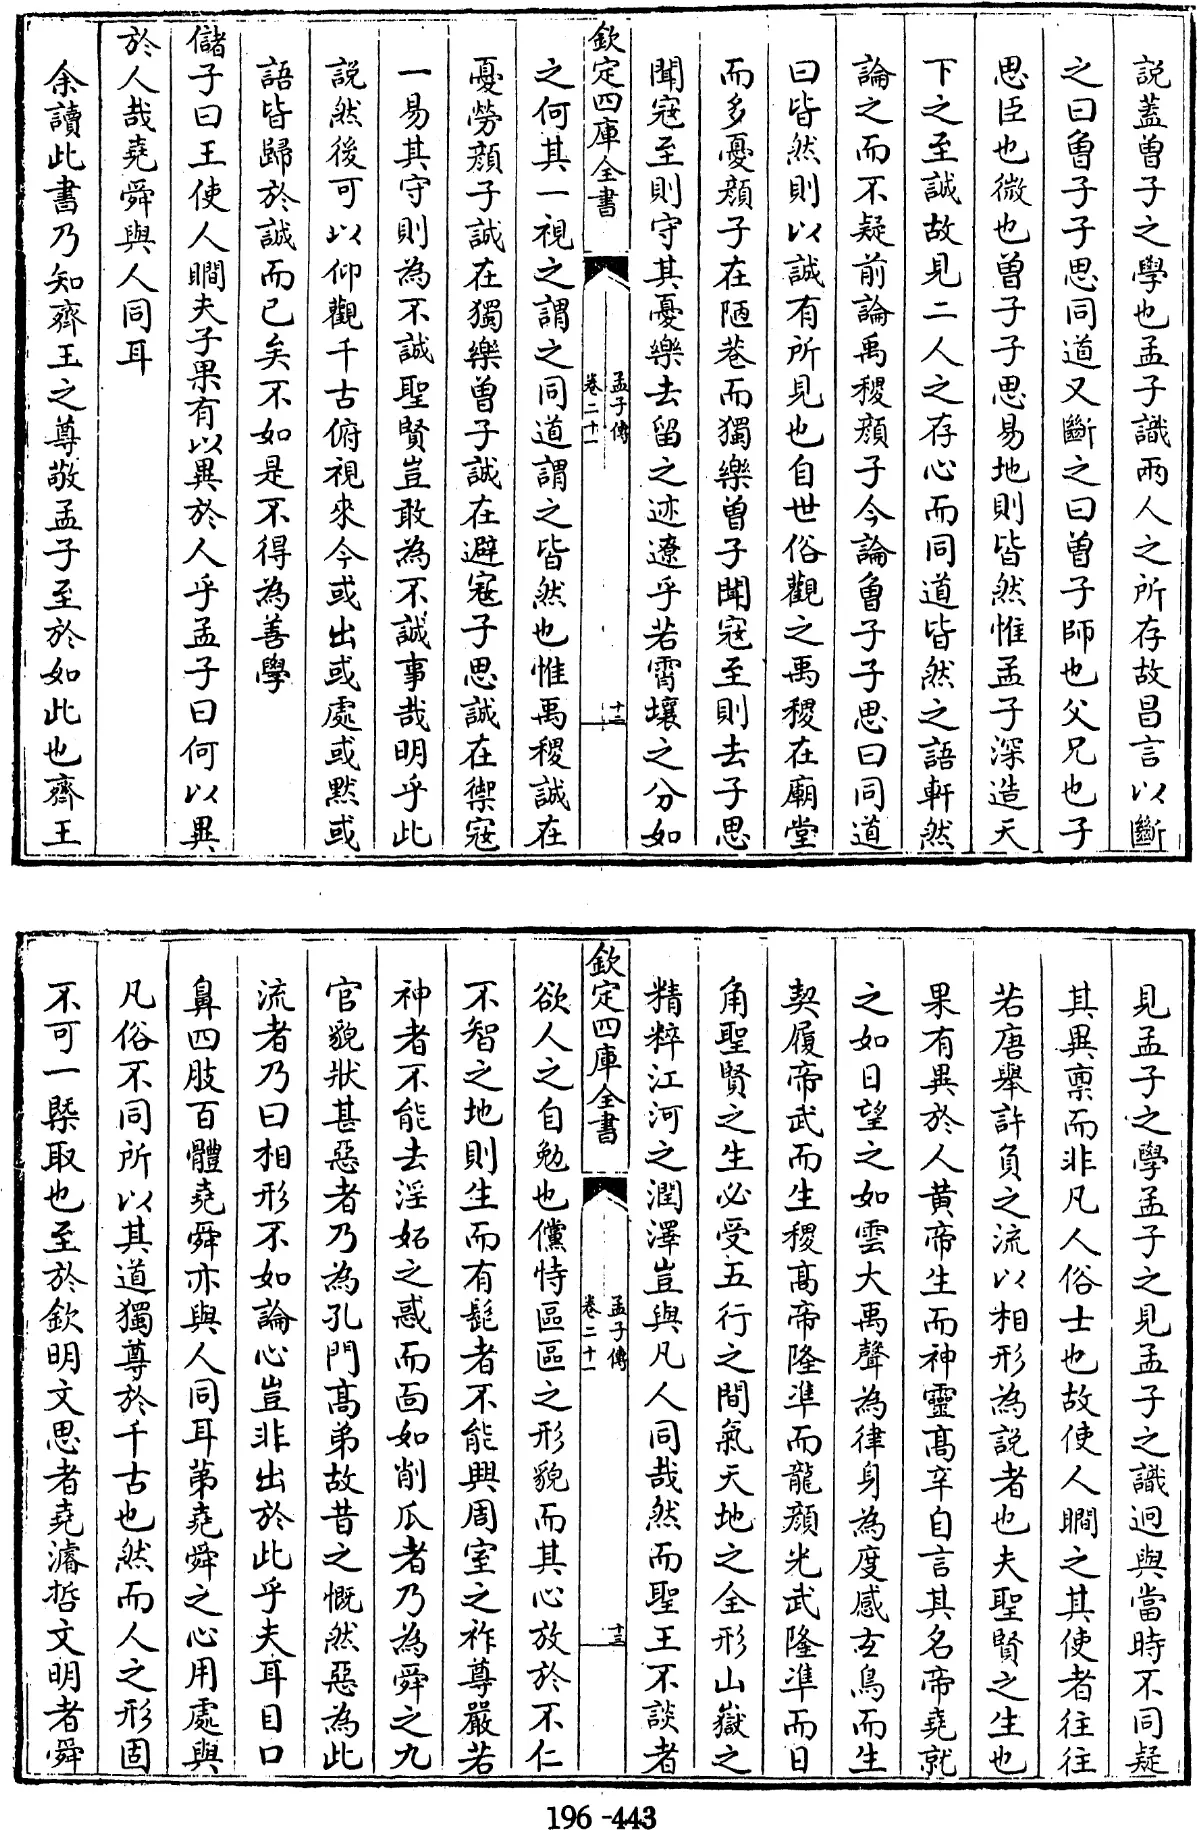 説蓋曽子之學也孟子識兩人之所存故昌言以斷
之曰曽子子思同道又斷之曰曽子師也父兄也子
思臣也微也曽子子思易地則皆然惟孟子深造天
下之至誠故見二人之存心而同道皆然之語軒然
論之而不疑前論禹稷顔子今論曽子子思曰同道
曰皆然則以誠有所見也自世俗觀之禹稷在廟堂
而多憂顔子在陋巷而獨樂曽子聞寇至則去子思
聞寇至則守其憂樂去留之迹遼乎若霄壤之分如
欽定四庫全書
孟子傳
卷二十一
十二
之何其一視之謂之同道謂之皆然也惟禹稷誠在
憂勞顔子誠在獨樂曽子誠在避寇子思誠在禦寇
一易其守則為不誠聖賢豈敢為不誠事哉明乎此
説然後可以仰觀千古俯視來今或出或處或黙或
語皆歸於誠而已矣不如是不得為善學
儲子曰王使人瞯夫子果有以異於人乎孟子曰何以異
於人哉堯舜與人同耳
余讀此書乃知齊王之尊敬孟子至於如此也齊王
見孟子之學孟子之見孟子之識迥與當時不同疑
其異禀而非凡人俗士也故使人瞯之其使者往往
若唐舉許負之流以相形為説者也夫聖賢之生也
果有異於人黄帝生而神靈髙辛自言其名帝堯就
之如日望之如雲大禹聲為律身為度感玄鳥而生
契履帝武而生稷髙帝隆準而龍顔光武隆準而日
角聖賢之生必受五行之間氣天地之全形山嶽之
精粹江河之潤澤豈與凡人同哉然而聖王不談者
欽定四庫全書
孟子傳
卷二十一
十三
欲人之自勉也儻恃區區之形貌而其心放於不仁
不智之地則生而有髭者不能興周室之祚尊嚴若
神者不能去淫妬之惑而面如削瓜者乃為舜之九
官貌狀甚惡者乃為孔門髙弟故昔之慨然惡為此
流者乃曰相形不如論心豈非出於此乎夫耳目口
鼻四肢百體堯舜亦與人同耳第堯舜之心用處與
凡俗不同所以其道獨尊於千古也然而人之形固
不可一槩取也至於欽明文思者堯濬哲文明者舜
196-443